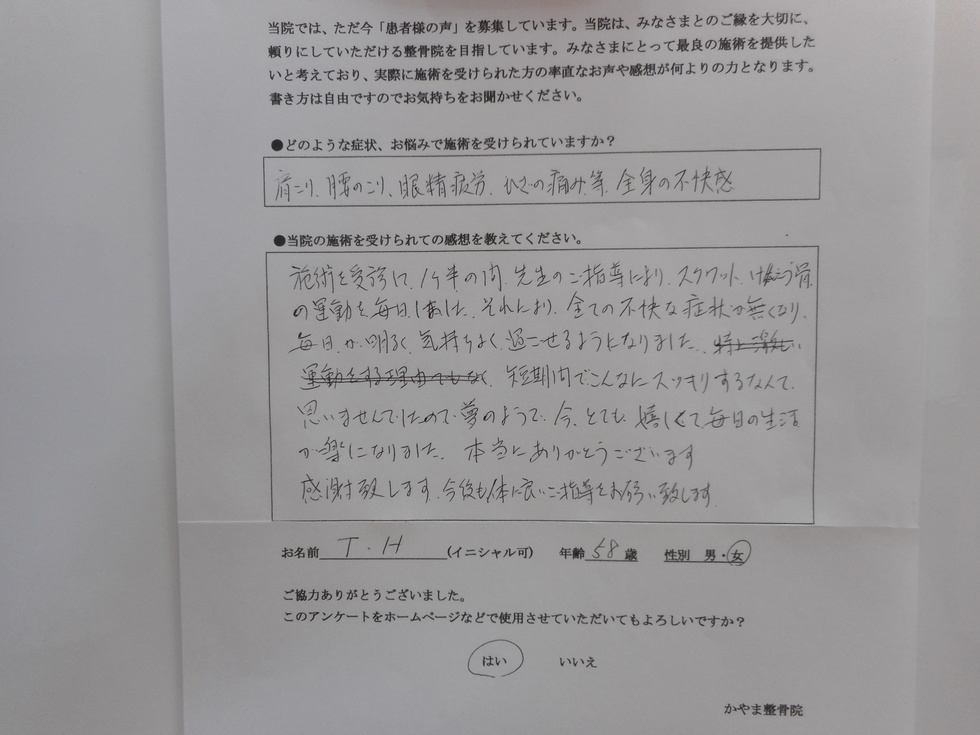 当院では、ただ今「患者様の声」を募集しています。当院は、みなさまとのご縁を大切に、
頼りにしていただける整骨院を目指しています。みなさまにとって最良の施術を提供した
いと考えており、実際に施術を受けられた方の率直なお声や感想が何よりの力となります。
書き方は自由ですのでお気持ちをお聞かせください。
●どのような症状、お悩みで施術を受けられていますか？
肩こり、腰のこり、眼精疲労、ひざの痛み、等、全身の不快感
●当院の施術を受けられての感想を教えてください。
施術を受診して、1ケ半の間、先生のご指導により、スクワット、けんこう骨
の運動を毎日しました。それにより、全ての不快な症状が無くなり、
毎日が明るく、気持ちよく過ごせるようになりました。特に激しい
運動をする理由でもなく、短期間でこんなにスッキリするなんて、
思いませんでしたので夢のようで、今、とても嬉しくて毎日の生活
が楽になりました。本当にありがとうございます
感謝致します。今後も体に良いご指導をお願い致します。
お名前 T・H (イニシャル可) 年齢 58 歳 性別 男・女
ご協力ありがとうございました。
このアンケートをホームページなどで使用させていただいてもよろしいですか？
はい いいえ
かやま整骨院